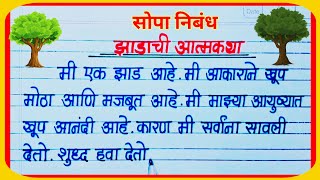 सोपा निबंध
झाडाची आत्मकथा
मी एक झाड आहे. मी आकाराने खूप
मोठा आणि मजबूत आहे. मी माझ्या आयुष्यात
खूप आनंदी आहे. कारण मी सर्वांना सावली
देतो. शुध्द हवा देतो